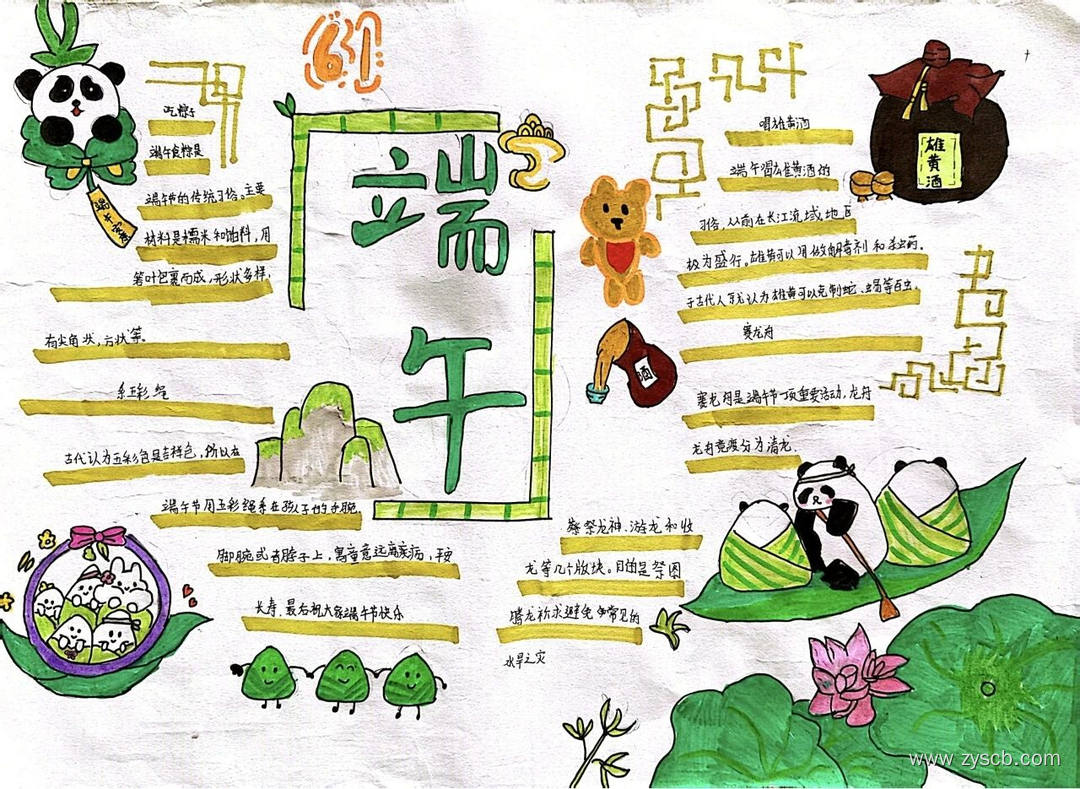 61
端午
端午安康
吃粽子
端午食粽是
端午节的传统习俗。主要
材料是糯米和馅料，用
箬叶包裹而成，形状多样，
有尖角状，方状等。
系五彩绳
古代认为五彩色是吉祥色，所以在
端午节用五彩绳系在孩子的手腕，
脚腕或者脖子上，寓意远离疾病，
长寿、最后祝大家端午节快乐
雄黄酒
喝雄黄酒
端午喝雄黄酒的
习俗，从前在长江流域地区
极为盛行。雄黄可以用做解毒剂和杀虫药。
于古代人就认为雄黄可以克制蛇、蝎等百虫，
酒
赛龙舟
赛龙舟是端午节一项重要活动，龙舟
龙舟竞渡分为请龙、
祭祭龙神、游龙和收
龙等几个版块。目的是祭图
腾龙祈求避免常见的
水旱之灾
www.zyscb.com